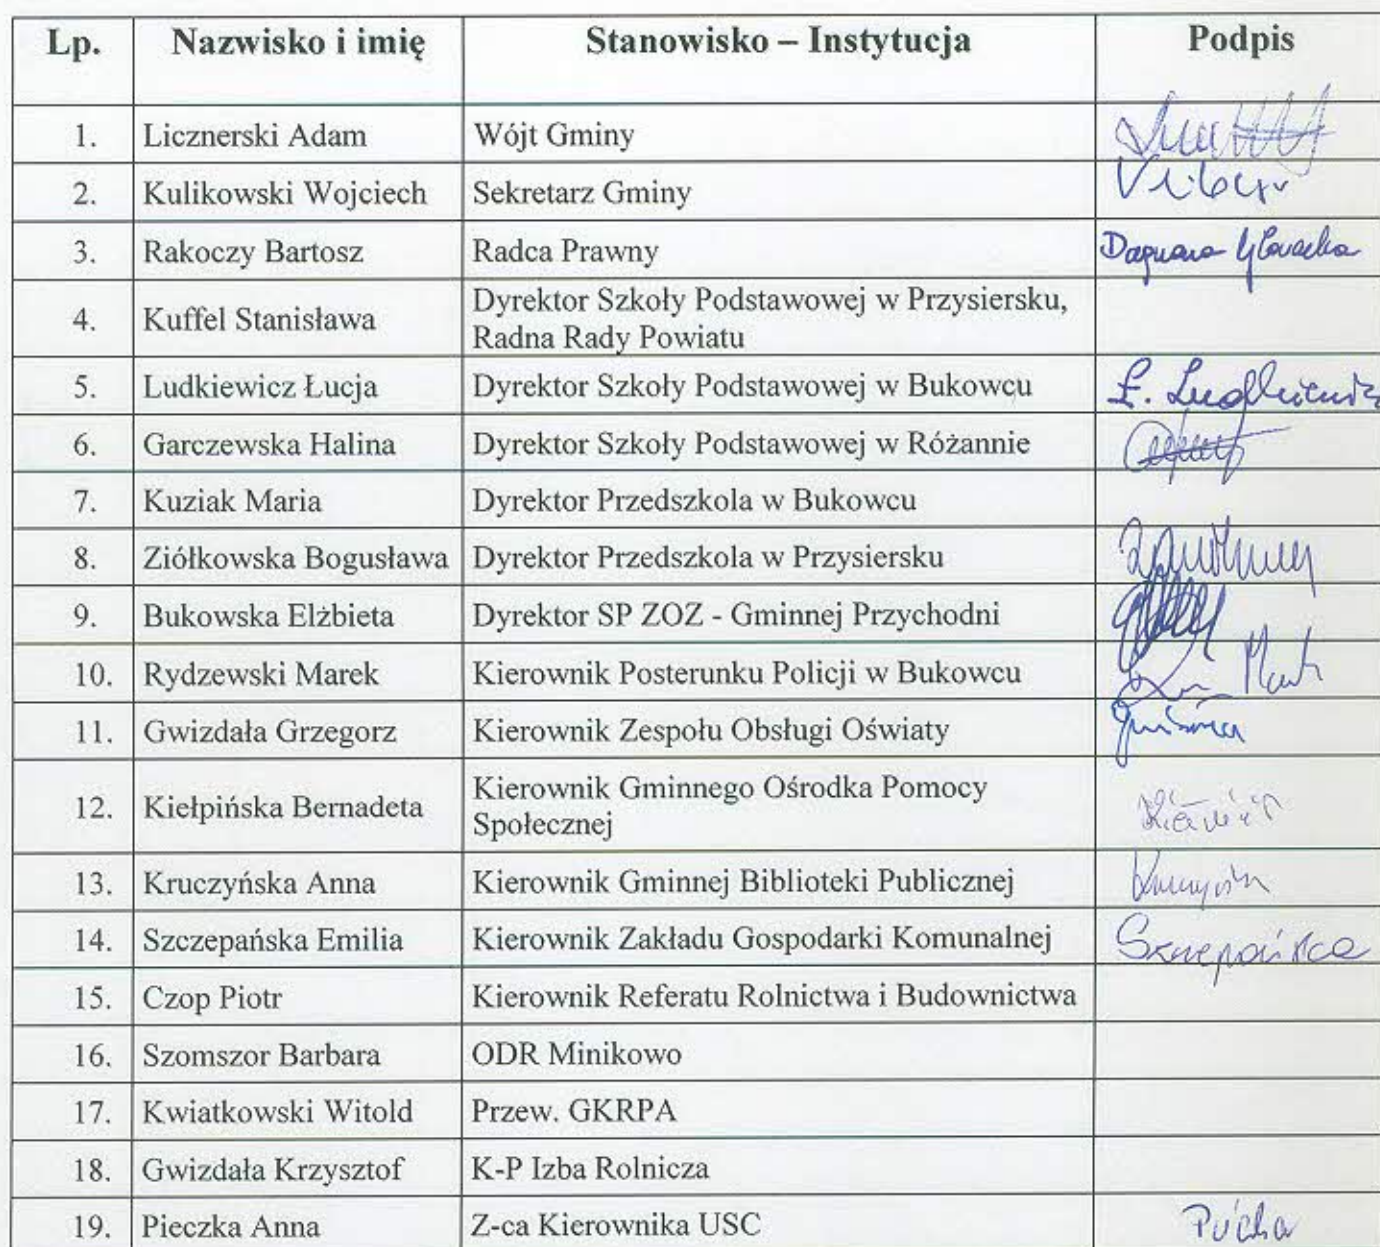 Lp. Nazwisko i imię Stanowisko – Instytucja Podpis
1. Licznerski Adam Wójt Gminy
2. Kulikowski Wojciech Sekretarz Gminy
3. Rakoczy Bartosz Radca Prawny Dagmara Głowacka
4. Kuffel Stanisława Dyrektor Szkoły Podstawowej w Przysiersku,
Radna Rady Powiatu
5. Ludkiewicz Łucja Dyrektor Szkoły Podstawowej w Bukowcu Ł. Ludkiewicz
6. Garczewska Halina Dyrektor Szkoły Podstawowej w Różannie
7. Kuziak Maria Dyrektor Przedszkola w Bukowcu
8. Ziółkowska Bogusława Dyrektor Przedszkola w Przysiersku
9. Bukowska Elżbieta Dyrektor SP ZOZ - Gminnej Przychodni
10. Rydzewski Marek Kierownik Posterunku Policji w Bukowcu
11. Gwizdała Grzegorz Kierownik Zespołu Obsługi Oświaty
12. Kiełpińska Bernadeta Kierownik Gminnego Ośrodka Pomocy
Społecznej
13. Kruczyńska Anna Kierownik Gminnej Biblioteki Publicznej
14. Szczepańska Emilia Kierownik Zakładu Gospodarki Komunalnej Szczepańska
15. Czop Piotr Kierownik Referatu Rolnictwa i Budownictwa
16. Szomszor Barbara ODR Minikowo
17. Kwiatkowski Witold Przew. GKRPA
18. Gwizdała Krzysztof K-P Izba Rolnicza
19. Pieczka Anna Z-ca Kierownika USC